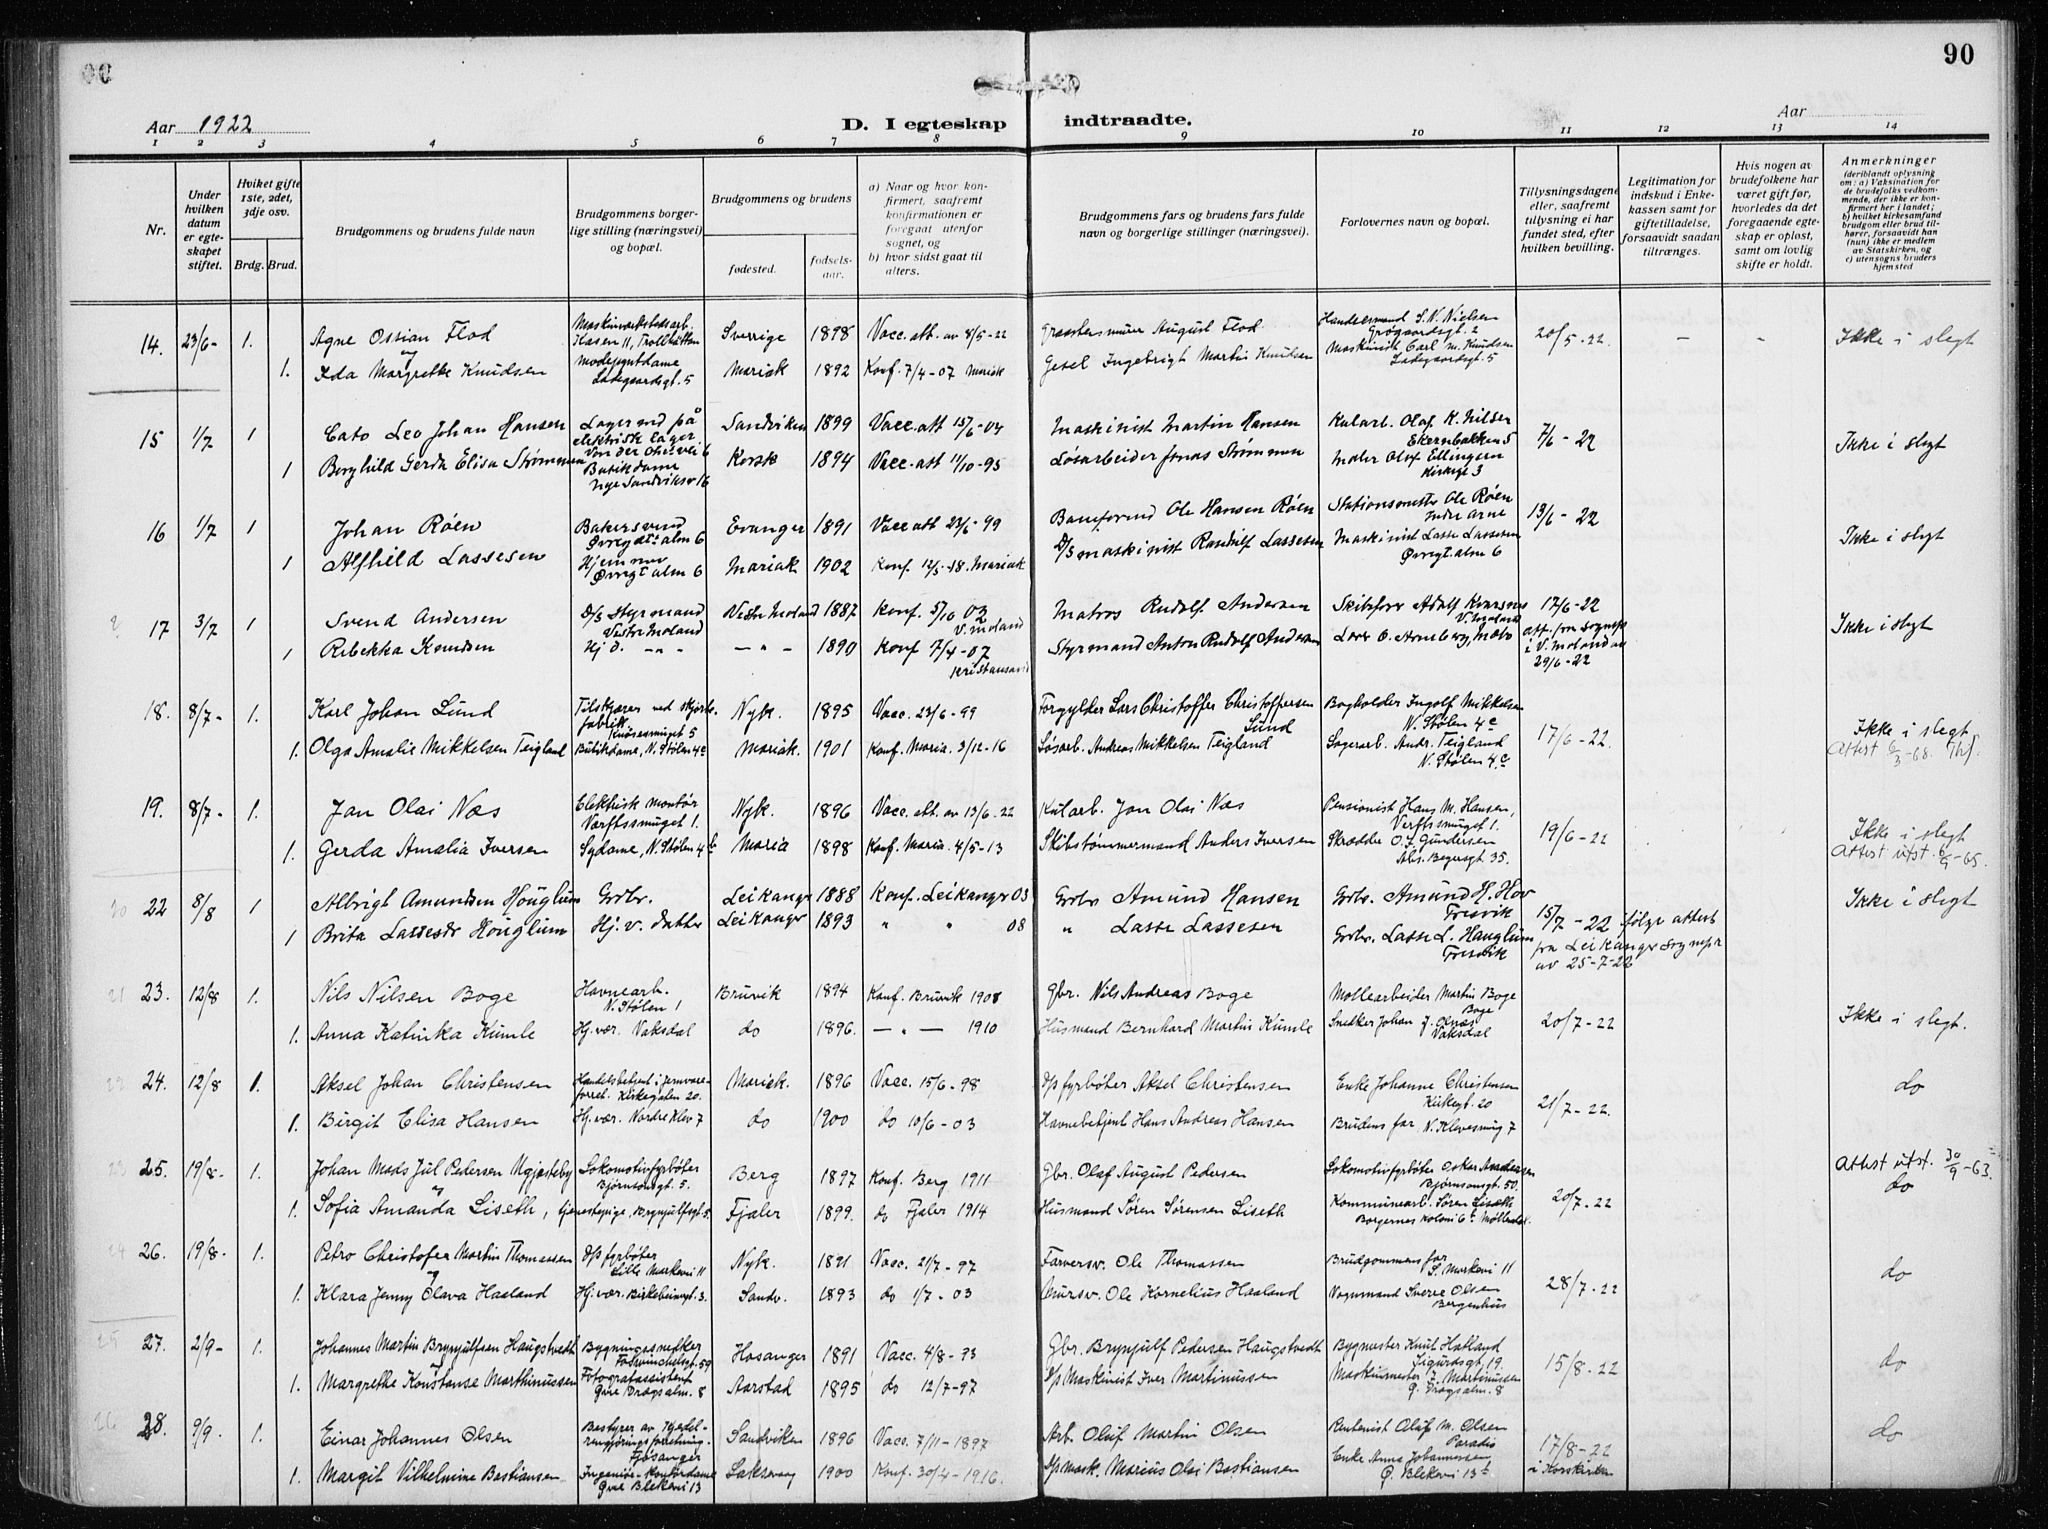 90
Aar 1922
D. I egteskap indtraadte.
Aar
1 2 3 4 5 6 7 8 9 10 11 12 13 14
Nr.
Under hvilken datum er egteskapet stiftet.
Hviket gifte 1ste, 2det, 3dje osv.
Brdg. Brud.
Brudgommens og brudens fulde navn
Brudgommens borgerlige stilling (næringsvei) og bopæl.
Brudgommens og brudens
fødested.
fødselsaar.
a) Naar og hvor konfirmert, saafremt konfirmationen er foregaat utenfor sognet, og
b) hvor sidst gaat til alters.
Brudgommens fars og brudens fars fulde navn og borgerlige stillinger (næringsvei).
Forlovernes navn og bopæl.
Tillysningsdagene eller, saafremt tillysning ei har fundet sted, efter hvilken bevilling.
Legitimation for indskud i Enkekassen samt for giftetilladelse, forsaavidt saadan tiltrænges.
Hvis nogen av brudefolkene har været gift før, hvorledes da det foregaaende egteskap er opløst, samt om lovlig skifte er holdt.
Anmerkninger (deriblandt oplysning om: a) Vaksination for de brudefolks vedkommende, der ikke er konfirmert her i landet; b) hvilket kirkesamfund brudgom eller brud tilhører, forsaavidt han (hun) ikke er medlem av Statskirken, og c) utensogns bruders hjemsted
14. 23/6- 1. Agne Ossian Flod Sverige 1898 Vacc. att. av 8/5-22 August Flod Handelsmand S. N. Nielsen 20/5-22 - - Ikke i slegt
og
1. Ida Margrethe Knudsen Ladegaardsgt. 5 Mariak 1892 Konf. 7/4-07 Mariak Ingebrigt Martin Knudsen Maskinist Carl M. Knudsen Ladegaardsgt. 5
15 1/7 1 Cato Leo Johan Hansen elektrisk lager Sandviken 1899 Vacc. att 15/6-04 Maskinist Martin Hansen Kularb. Olaf K. Nilsen 7/6-22 Ikke i slegt
1 Borghild Gerda Elisa Strømmen Butikdame Nye Sandviksv 16 Korsk 1894 Vacc. att 11/10-95 Løsarbeider Jonas Strømmen Maler Olaf Ellingsen
16 1/7 1 Johan Røen Bakersvend Evanger 1891 Vacc att 23/6-99 Ole Hansen Røen Stationsmestr Ole Røen Indre Arne 13/6-22 Ikke i slegt
1 Alfhild Lassesen Hjemme Øvregt alm 6 Mariak 1902 Konf. 12/5-18. Mariak D/S maskinist Lassesen Maskinist Lasse Lassesen Øvregt alm 6
17 3/7 1 Svend Andersen D/S Styrmand Vestre Moland Vestre Moland 1887 Konf. 5/10 02 V. Moland Matros Rudolf Andersen 17/6-22 Ikke i slegt
1 Rebekka Knudsen Hj d. -"- -"- 1890 Konf 7/4-07 Kristiansand Styrmand Anton Rudolf Andersen i V. Moland av 29/6-22
18. 8/7- 1. Karl Johan Lund Tilskjærer ved skjortefabrik. Nyk. 1895 Vacc. 23/6-99 Forgylder Lars Christoffer Christoffersen Lund Bogholder Ingolf Mikkelsen N. Stølen 4c 17/6-22. Ikke i slegt
1. Olga Amalie Mikkelsen Teigland Butikdame, N. Stølen 4c Mariak. 1901 Konf. Maria. 3/12-16 Løsarb. Andreas Mikkelsen Teigland Lagerarb. Andr. Teigland N. Stølen 4c Attest 6/3-68.
19. 8/7- 1. Jan Olai Næs Elektrisk montør Verftssmuget 1. Nyk. 1896 Vacc. att. av 13/6-22 Kularb. Jon Olai Næs Pensionist Hans M. Hansen, Verftssmuget 1. 19/6-22 Ikke i slegt
1. Gerda Amalia Iversen Sydame, N. Stølen 4b Maria 1898 Konf. Maria. 4/5-13 Skibstømmermand Anders Iversen Skrædder O. L. Gundersen 35. Attest utst. 6/9-65.
20 22 8/8 1 Albrigt Amundsen Höuglum Grbr. Leikanger 1888 Konf. Leikanger 03 Grbr Amund Hansen Grbr. Amund H. Hov Fresvik 15/7-22 ifølge attest fra Leikanger sognepr av 25-7-22 Ikke i slegt
1 Brita Lassesdr Höuglum Hj. v. datter Leikanger 1893 " " 08 " Lasse Lassesen Grbr. Lasse L. Hauglum Fresvik
21 23. 12/8 1. Nils Nilsen Boge Havnearb. N. Stølen 1 Bruvik 1894 Konf. Bruvik 1908 Gbr. Nils Andreas Boge Møllearbeider Martin Boge Boge 20/7-22 Ikke i slegt.
1. Anna Katinka Kumle Hj. vær. Vaksdal do 1896. -"- 1910 Husmand Bernhard Martin Kumle Snedker Johan J. Vaksdal
22 24. 12/8 1. Aksel Johan Christensen Handelsbetjent i jernvareforret. Kirkegaten 20. Mariak. 1896 Vacc. 15/6-98 D/S fyrbøter Aksel Christensen Enke Johanne Christensen Kirkegt. 20 21/7-22. do
1. Birgit Elisa Hansen Hj. vær. Nordre Klev 7 do 1900 do 10/6-03 Havnebetjent Hans Andreas Hansen Brudens far N. Klevesmug 7
23 25. 19/8- 1. Johan Mads Jul Pedersen Lokomotivfyrbøter Bjørnsonsgt. 5. Berg 1897 Konf. Berg 1911 Gbr. Olaf August Pedersen Lokomotivfyrbøter Oskar Andersen Bjørnsonsgt. 50. 20/7-22 Attest utst. 30/9-63. do
og
1. Sofia Amanda Liseth, tjenestepige, Brynjulfsgt 5. Fjaler 1899. do Fjaler 1914 Husmand Søren Sørensen Liseth Kommunearb. Søren Liseth
24 26. 19/8. 1. Petro Christofer Martin Thomassen D/S fyrbøter Lille Markevi 11 Nyk. 1891 Vacc. 21/7-97 Farversv. Ole Thomassen Brudgommens far L. Markevi 11 28/7-22 do
og
1. Klara Jenny Olava Haaland Hj. vær. Birkebeinergt. 3. Sandv. 1893 do 1/7-03 Mursv. Ole Kornelius Haaland Vognmand Sverre Olsen Bergenhus
25 27. 2/9- 1. Johannes Martin Brynjulfsen Haugstvedt Bygningssnedker Hosanger 1891 Vacc. 4/8-93 Gbr. Brynjulf Pedersen Haugstvedt Bygmester Knut Hatland Sigurdsgt 19. 15/8-22 do
1. Margrethe Konstanse Marthinussen Fotografassistent Øvre Dragsalm. 8 Aarstad 1895 do 12/7-97 D/S Maskinist Iver Martinussen Maskinmester J. Martinussen Ø. Dragsalm. 8
26 28. 9/9. 1. Einar Johannes Olsen Bestyrer av Kjedelrengjøringsforretning. Fjøsanger Sandviken 1896 Vacc. 7/11-1897 Arb. Oluf Martin Olsen Rentenist Oluf M. Olsen Paradis 17/8-22 i Korskirken do
1. Margit Vilhelmine Bastiansen Ingeniør-kontordame Øvre Blekevi 13 Laksevaag 1900 Konf. 30/4-1916. D/S Mask. Marius Olai Bastiansen Enke Anna Johannessen Ø. Blekevi 13b